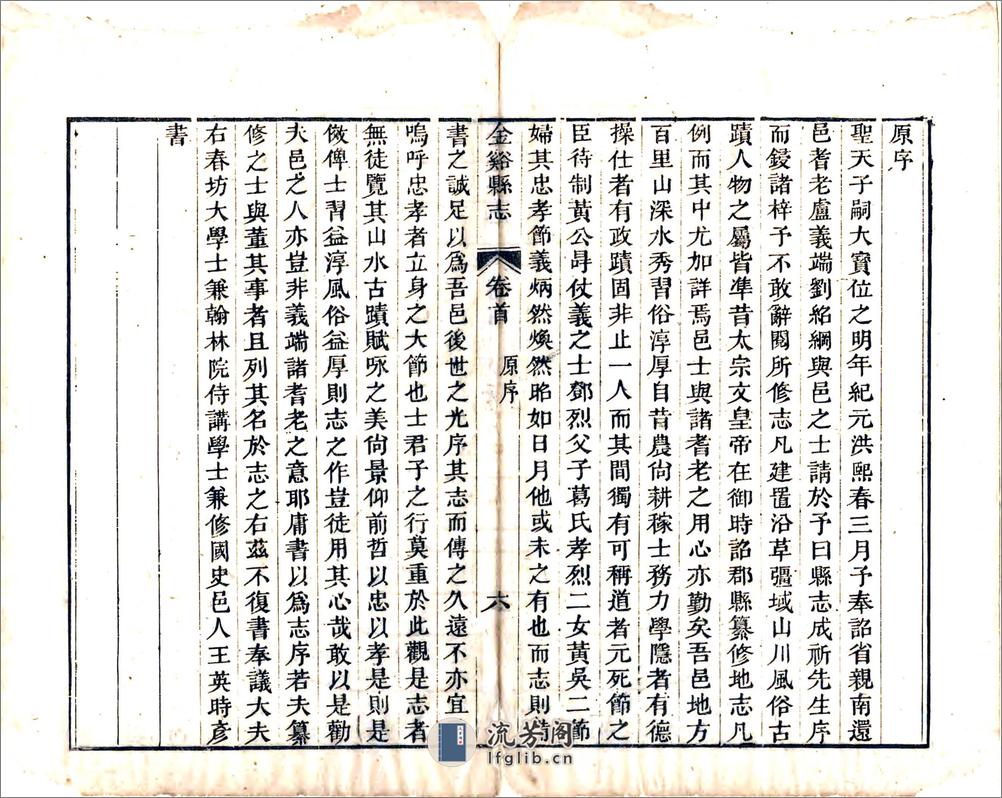 原序
聖天子嗣大寶位之明年紀元洪熙春三月予奉詔省親南還
邑耆老盧義端劉紹綱與邑之士請於予曰縣志成祈先生序
而鋟諸梓予不敢辭閱所修志凡建置沿革疆域山川風俗古
蹟人物之屬皆準昔太宗文皇帝在御時詔郡縣纂修地志凡
例而其中尤加詳焉邑士與諸耆老之用心亦勤矣吾邑地方
百里山深水秀習俗淳厚自昔農尙耕稼士務力學隱者有德
操仕者有政蹟固非止一人而其間獨有可稱道者元死節之
臣待制黃公㝵仗義之士鄧烈父子葛氏孝烈二女黃吳二節
婦其忠孝節義炳然煥然昭如日月他或未之有也而志則備
金谿縣志 卷首 原序 六
書之誠足以爲吾邑後世之光序其志而傳之久遠不亦宜
嗚呼忠孝者立身之大節也士君子之行莫重於此觀是志者
無徒覽其山水古蹟賦咏之美尙景仰前哲以忠以孝是則是
傚俾士習益淳風俗益厚則志之作豈徒用其心哉敢以是勸
夫邑之人亦豈非義端諸耆老之意耶庸書以爲志序若夫纂
修之士與董其事者且列其名於志之右茲不復書奉議大夫
右春坊大學士兼翰林院侍講學士兼修國史邑人王英時彥
書
流芳閣
lfglib.cn